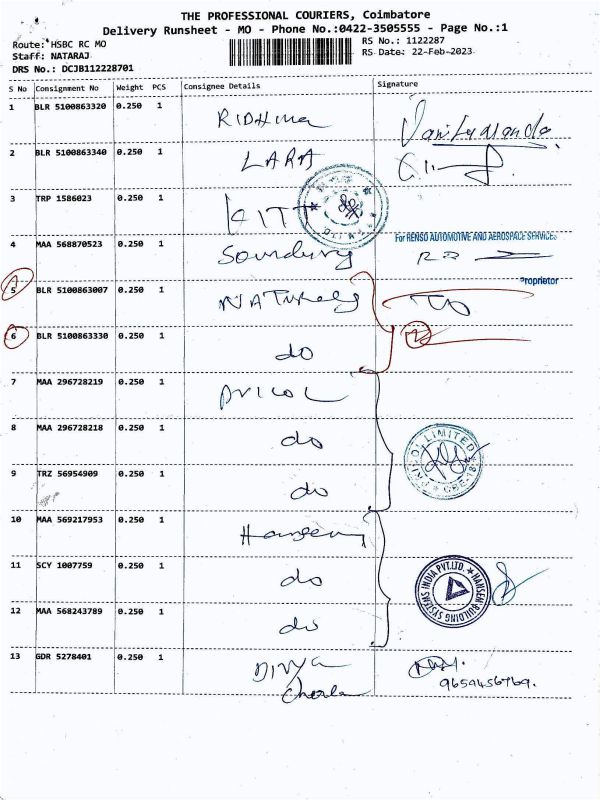 THE PROFESSIONAL COURIERS, Coimbatore
Delivery Runsheet - MO - Phone No.:0422-3505555 - Page No.:1
Route: HSBC RC MO
RS No.: 1122287
Staff: NATARAJ
RS Date: 22-Feb-2023
DRS No.: DCJB112228701
S No Consignment No Weight PCS Consignee Details Signature
1 BLR 5100863320 0.250 1 RIDHIMA
2 BLR 5100863340 0.250 1 LARA
3 TRP 1586023 0.250 1 KITT
4 MAA 568870523 0.250 1 Soundury
For RENSO AUTOMOTIVE AND AEROSPACE SERVICES
Proprietor
5 BLR 5100863007 0.250 1
6 BLR 5100863330 0.250 1 do
7 MAA 296728219 0.250 1 PRICOL
8 MAA 296728218 0.250 1 do
PRICOL LIMITED
CBE-18
9 TRZ 56954909 0.250 1 do
10 MAA 569217953 0.250 1 Hansen
11 SCY 1007759 0.250 1 do
HANSEN BUILDING SYSTEMS INDIA PVT.LTD.
12 MAA 568243789 0.250 1 do
13 GDR 5278401 0.250 1 DIVYA
9659456769.